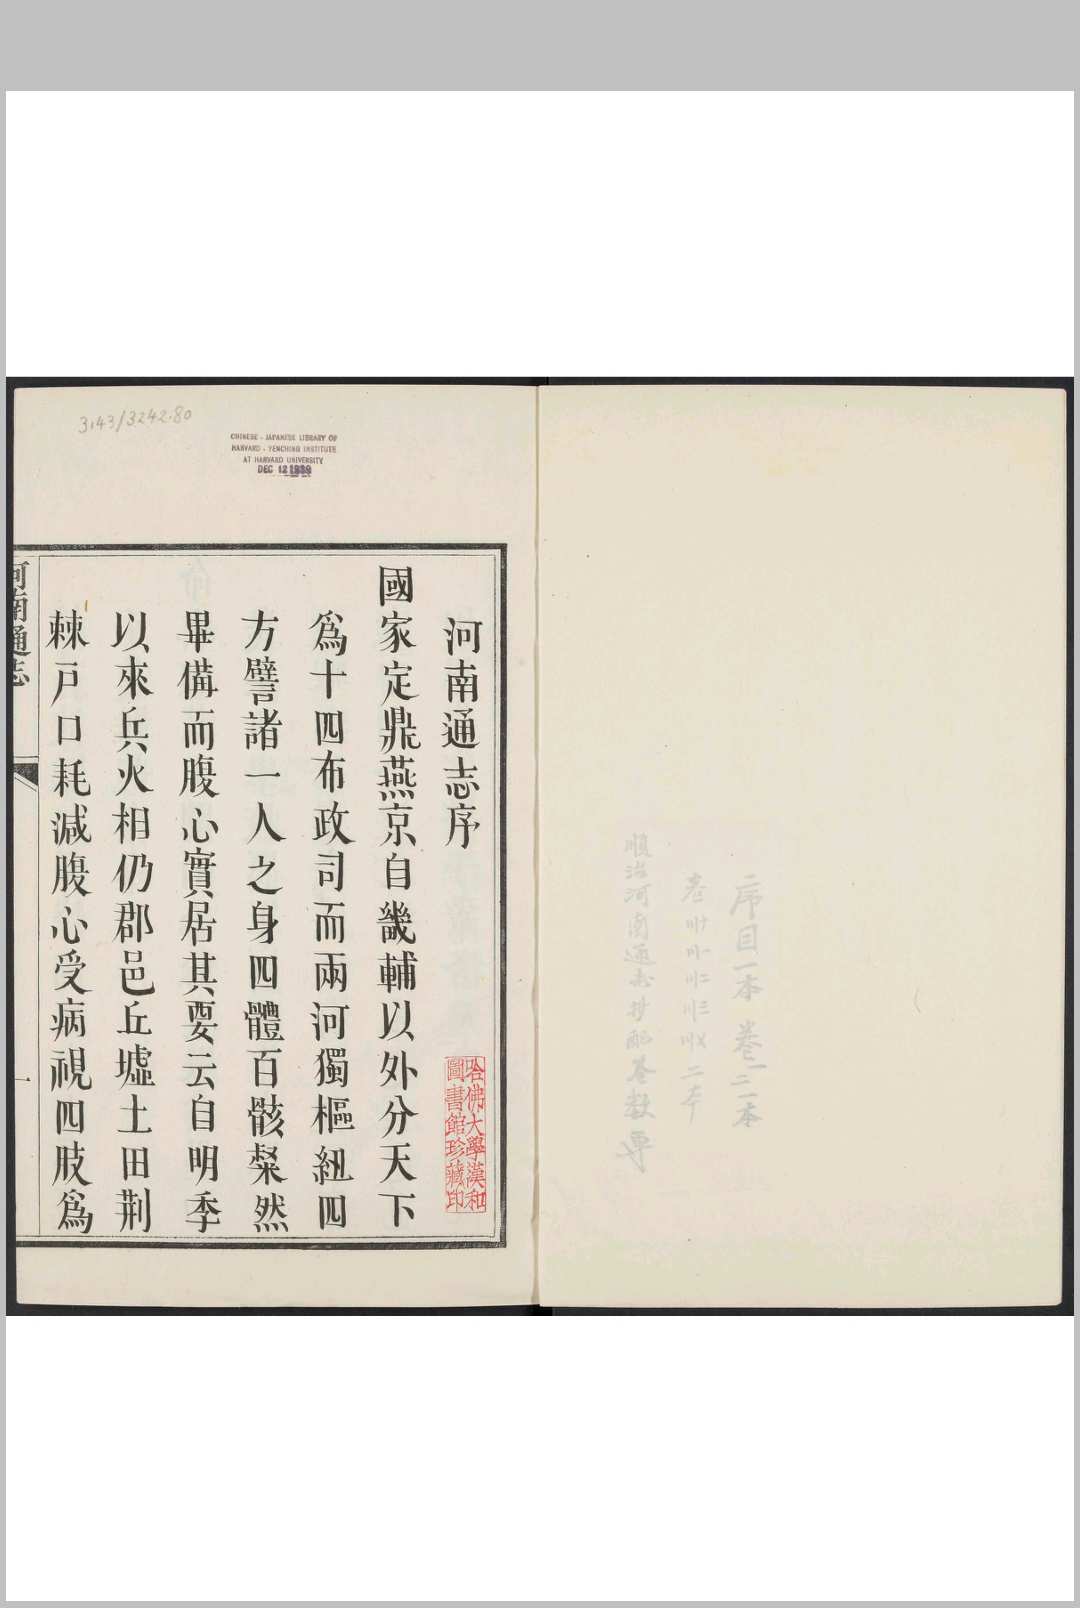 3143/3242.80
CHINESE - JAPANESE LIBRARY OF
HARVARD - YENCHING INSTITUTE
AT HARVARD UNIVERSITY
DEC 12 1939
序目一本 卷一二二本
二本
順治河南通志抄配卷數
河南通志序
國家定鼎燕京自畿輔以外分天下
爲十四布政司而兩河獨樞紐四
方譬諸一人之身四體百骸粲然
畢備而腹心實居其要云自明季
以來兵火相仍郡邑丘墟土田荆
棘戸口耗減腹心受病視四肢爲
河南通志
一
哈佛大學漢和
圖書館珍藏印